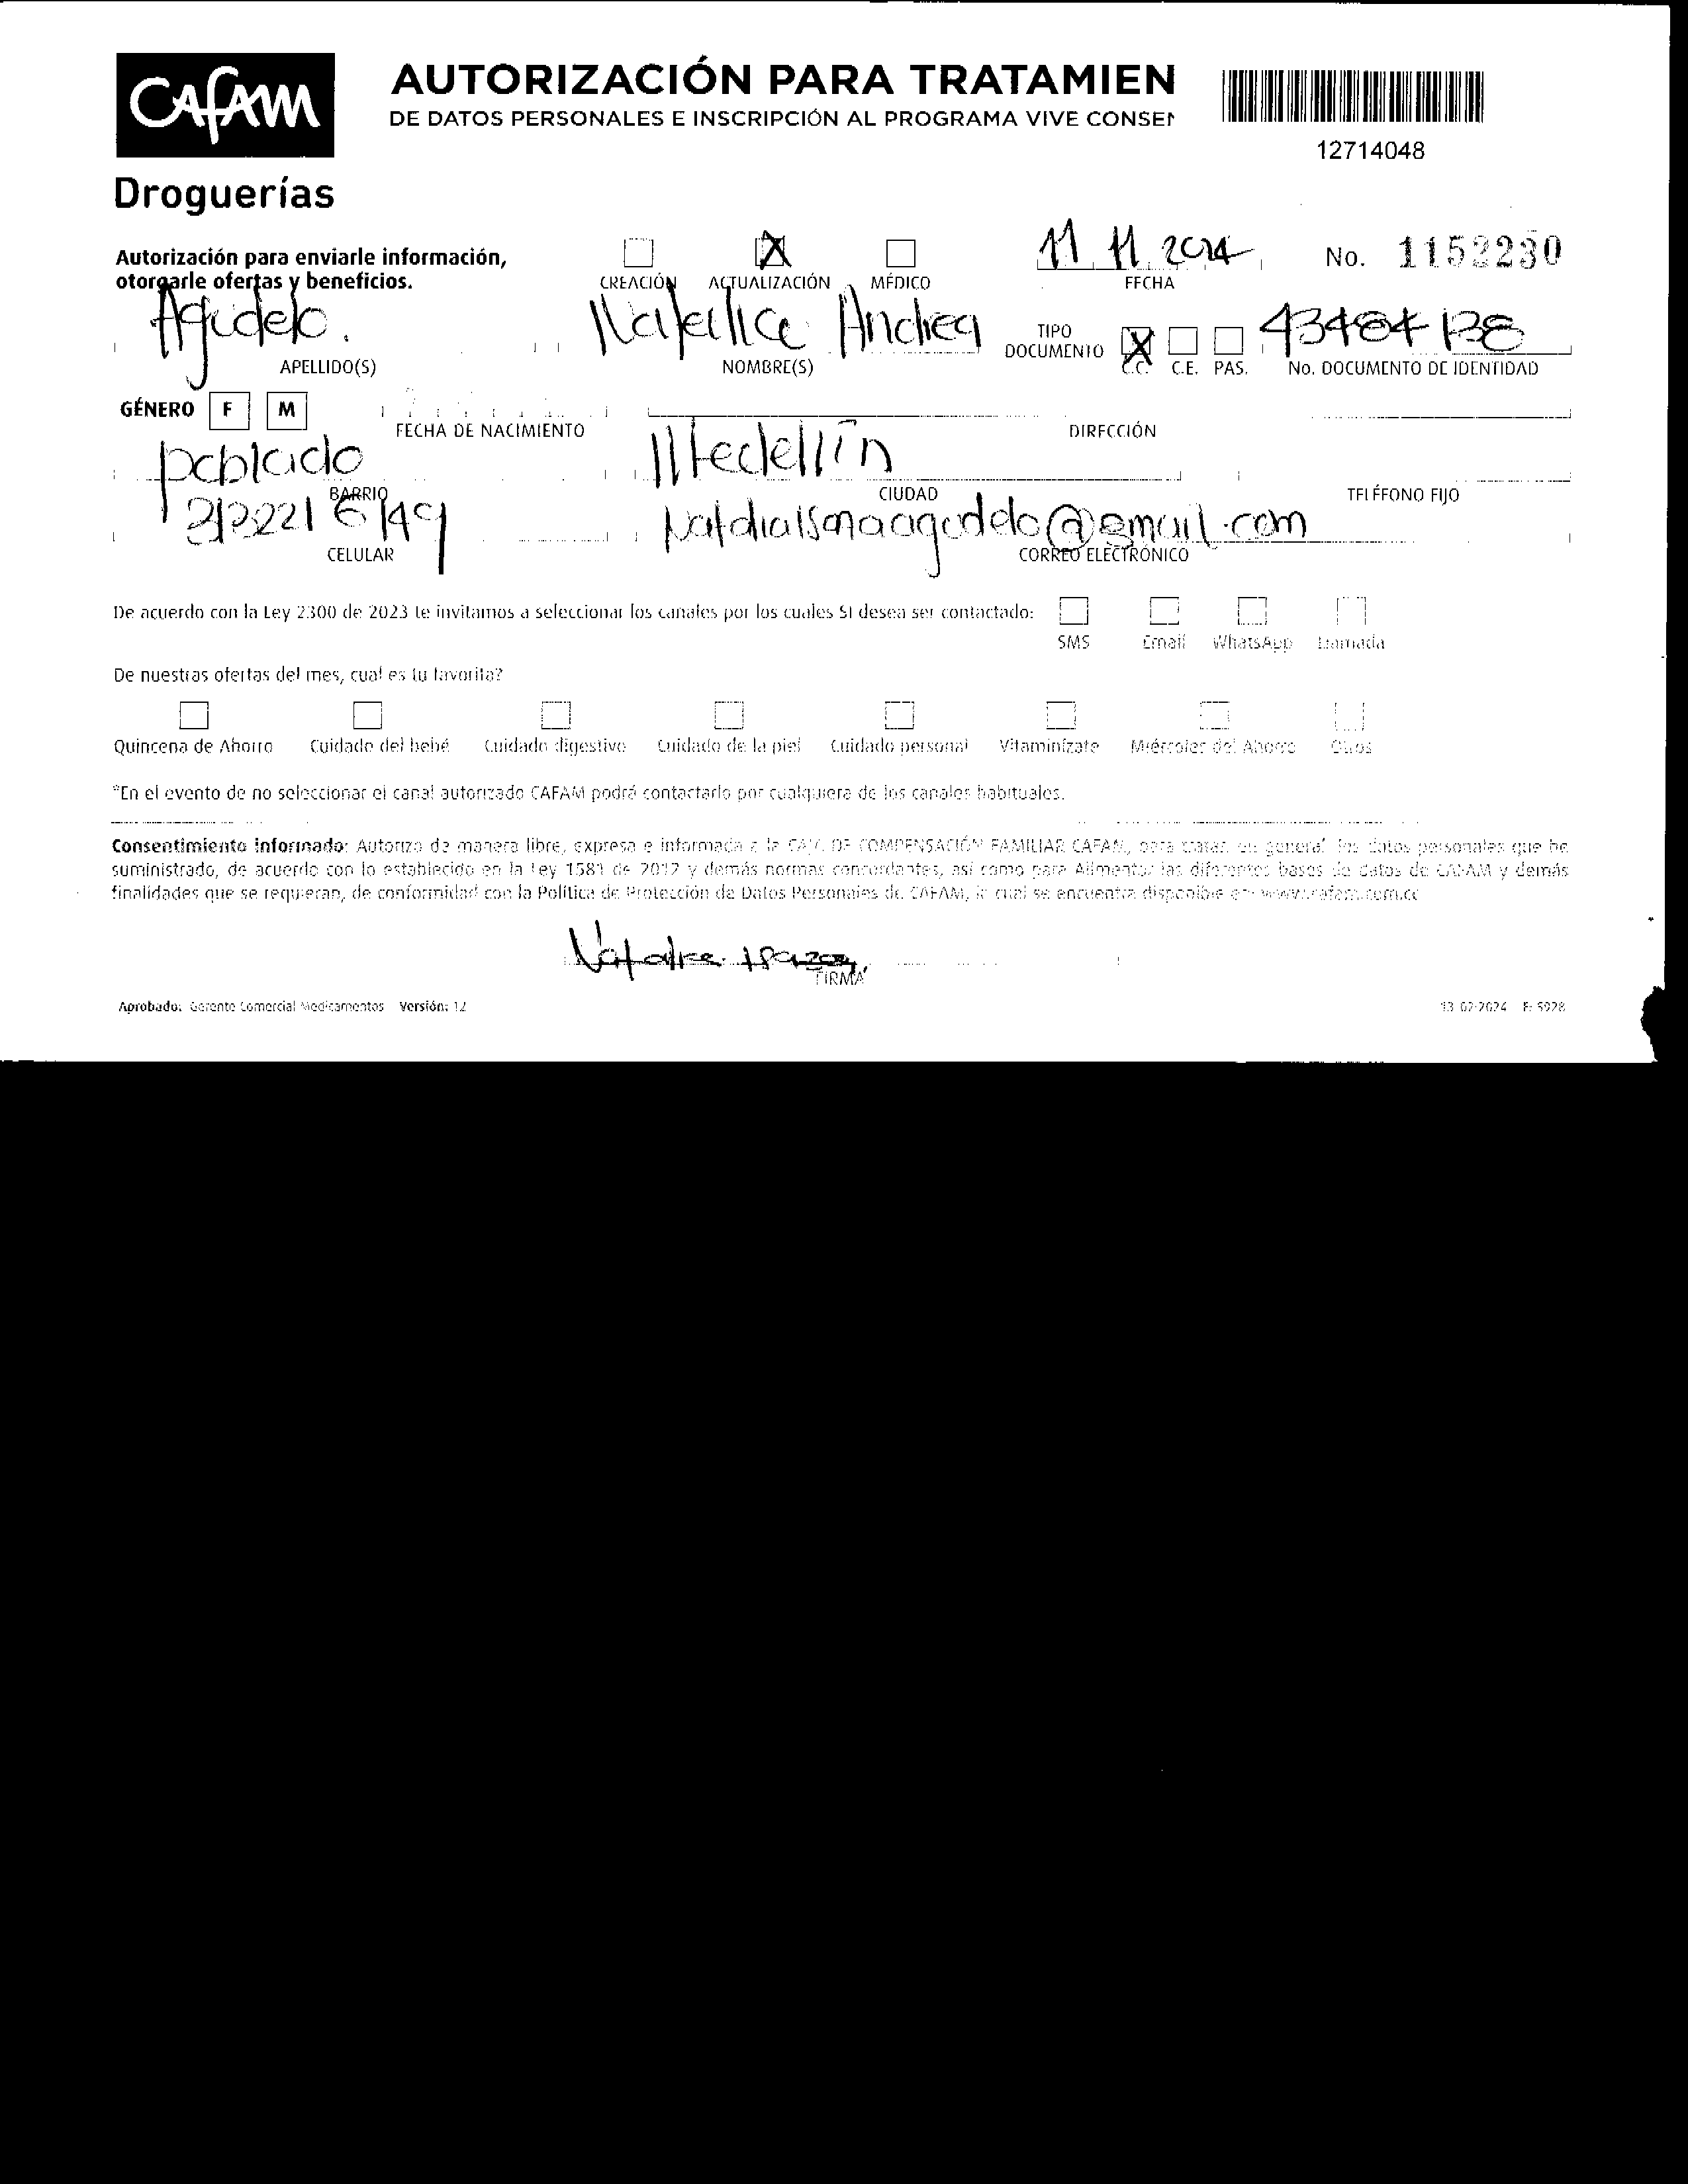 CAFAM
Droguerías
AUTORIZACIÓN PARA TRATAMIEN
DE DATOS PERSONALES E INSCRIPCIÓN AL PROGRAMA VIVE CONSEN
12714048
Autorización para enviarle información,
otorgarle ofertas y beneficios.
CREACIÓN ACTUALIZACIÓN MÉDICO
11 11 2024
FECHA
No. 1152230
Agudelo.
APELLIDO(S)
Natalia Andrea
NOMBRE(S)
TIPO
DOCUMENTO
C.C. C.E. PAS.
43484138
No. DOCUMENTO DE IDENTIDAD
GÉNERO F M
FECHA DE NACIMIENTO
DIRECCIÓN
poblado
BARRIO
Medellín
CIUDAD
TELÉFONO FIJO
CELULAR
@gmail.com
CORREO ELECTRÓNICO
De acuerdo con la Ley 2300 de 2023 te invitamos a seleccionar los canales por los cuales SI desea ser contactado:
SMS Email WhatsApp Llamada
De nuestras ofertas del mes, cual es tu favorita?
Quincena de Ahorro Cuidado del bebé Cuidado digestivo Cuidado de la piel Cuidado personal Vitaminízate Miércoles del Ahorro Otros
*En el evento de no seleccionar el canal autorizado CAFAM podrá contactarlo por cualquiera de los canales habituales.
Consentimiento informado: Autorizo de manera libre, expresa e informada a la CAJA DE COMPENSACIÓN FAMILIAR CAFAM, para tratar en general los datos personales que he
suministrado, de acuerdo con lo establecido en la Ley 1581 de 2012 y demás normas concordantes, así como para Alimentar las diferentes bases de datos de CAFAM y demás
finalidades que se requieran, de conformidad con la Política de Protección de Datos Personales de CAFAM, la cual se encuentra disponible en: www.cafam.com.co
Natalia
FIRMA
Aprobado: Gerente Comercial Medicamentos Versión: 12
13-02-2024 F: 5928